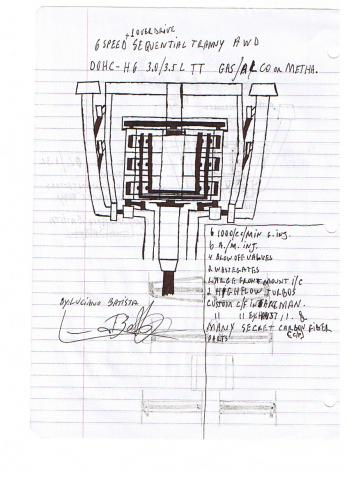 + 1 OVERDRIVE
6 SPEED SEQUENTIAL TRANNY AWD
DOHC-H6 3.0/3.5 L TT GAS/ALCO OR METHA.
6 1000/CC/MIN G. INJ.
6 A./M. INJ.
4 BLOW OFF VALVES
2 WASTEGATES
LARGE FRONT MOUNT I/C
2 HIGH FLOW TURBOS
CUSTOM C/F INTAKE MAN.
" " EXHAUST " . &
MANY SECRET CARBON FIBER
PARTS
BY: LUCIANO BATISTA